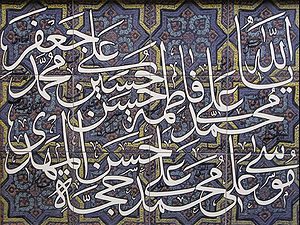 يا الله محمد علي فاطمة حسن حسين علي محمد جعفر
موسى علي محمد علي حسن المهدي حجة